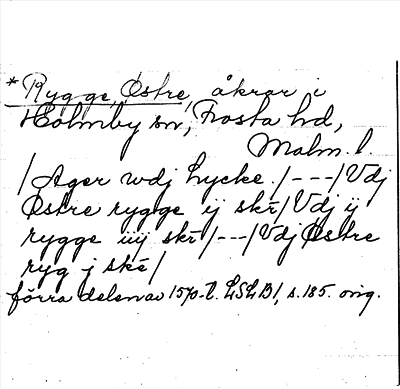 *Rygge, Østre, åkrar i
Holmby sn, Frosta hd,
Malm. l.
/Ager wdj Lycke./---/Vdj
Østre rygge ij skr/Vdj ij
rygge iiij skr/---/Vdj Østre
ryg j skr/
förra delen av 1570-t. LSLB1, s. 185. orig.